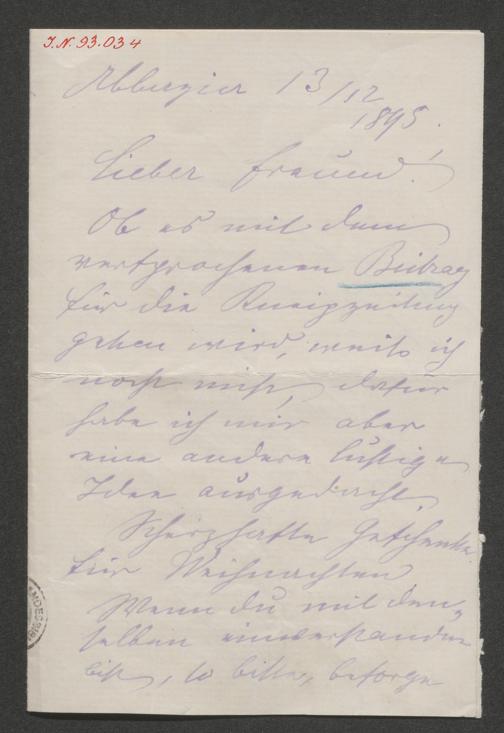 J.N. 93.034
Abbazia 13/12
1895.
Lieber Freund!
Ob es mit dem
versprochenen Beitrag
für die Kneipzeitung
gehen wird, weiß ich
noch nicht, dafür
habe ich mir aber
eine andere lustige
Idee ausgedacht.
Scherzhafte Geschenke
für Weihnachten
Wenn du mit den-
selben einverstanden
bist, so bitte, besorge